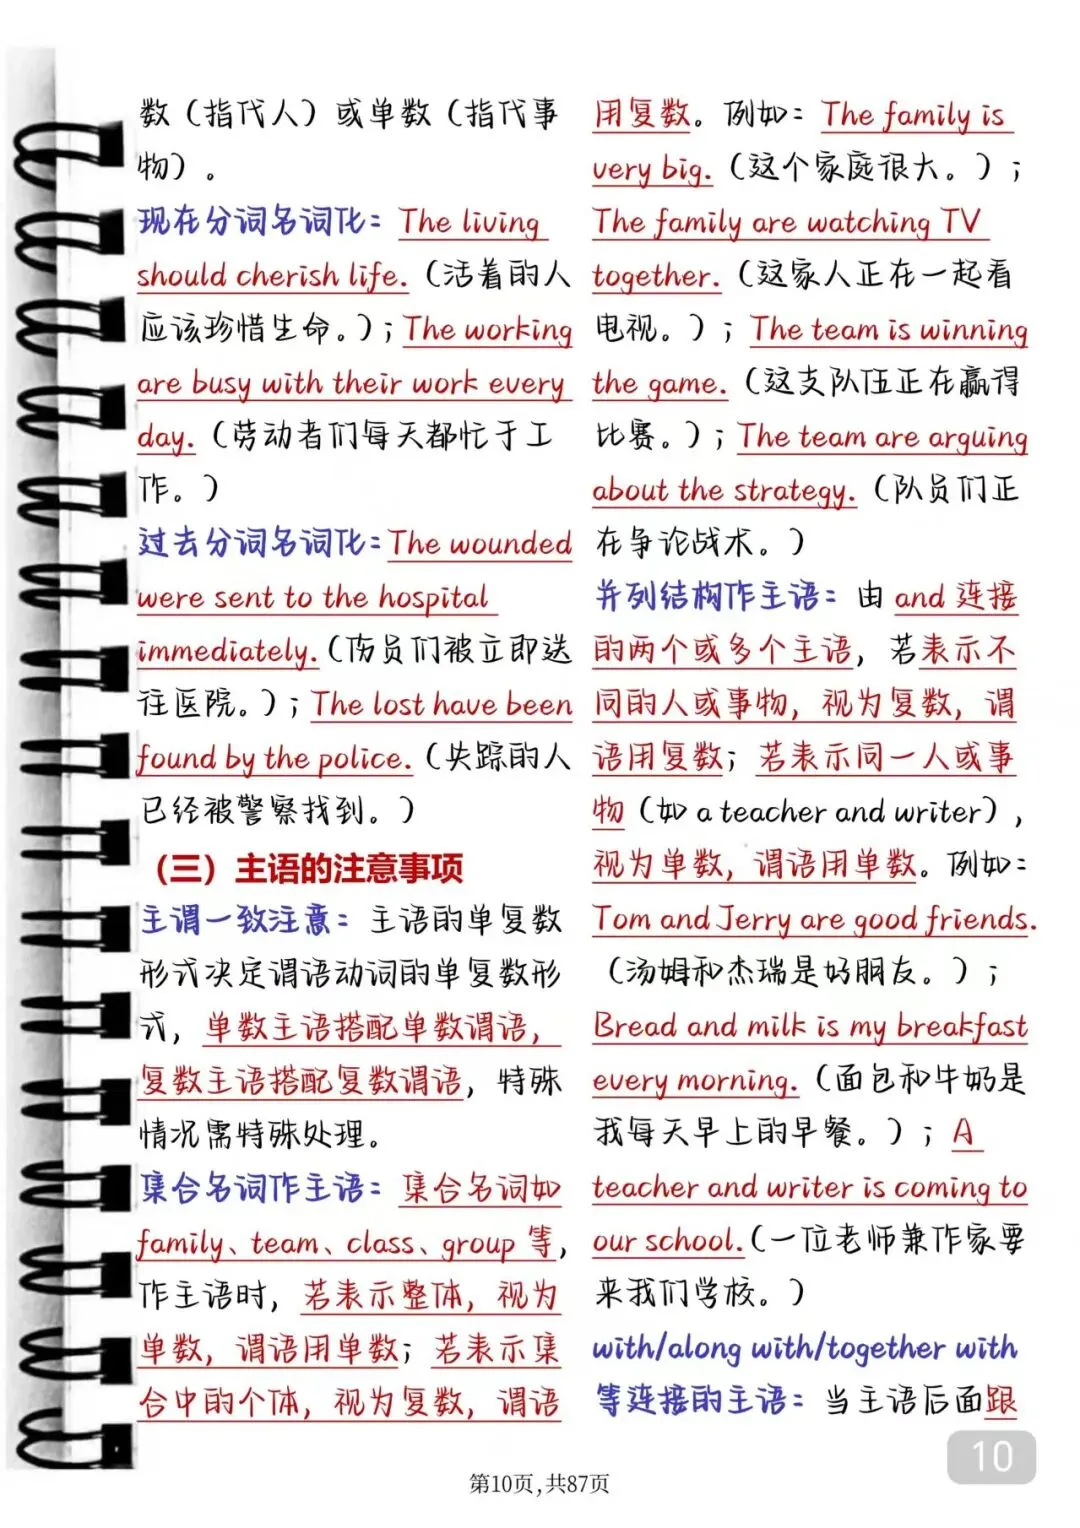 数（指代人）或单数（指代事
物）。
现在分词名词化：The living
should cherish life.（活着的人
应该珍惜生命。）；The working
are busy with their work every
day.（劳动者们每天都忙于工
作。）
过去分词名词化：The wounded
were sent to the hospital
immediately.（伤员们被立即送
往医院。）；The lost have been
found by the police.（失踪的人
已经被警察找到。）
（三）主语的注意事项
主谓一致注意：主语的单复数
形式决定谓语动词的单复数形
式，单数主语搭配单数谓语，
复数主语搭配复数谓语，特殊
情况需特殊处理。
集合名词作主语：集合名词如
family、team、class、group 等，
作主语时，若表示整体，视为
单数，谓语用单数；若表示集
合中的个体，视为复数，谓语
用复数。例如：The family is
very big.（这个家庭很大。）；
The family are watching TV
together.（这家人正在一起看
电视。）；The team is winning
the game.（这支队伍正在赢得
比赛。）；The team are arguing
about the strategy.（队员们正
在争论战术。）
并列结构作主语：由 and 连接
的两个或多个主语，若表示不
同的人或事物，视为复数，谓
语用复数；若表示同一人或事
物（如 a teacher and writer），
视为单数，谓语用单数。例如：
Tom and Jerry are good friends.
（汤姆和杰瑞是好朋友。）；
Bread and milk is my breakfast
every morning.（面包和牛奶是
我每天早上的早餐。）；A
teacher and writer is coming to
our school.（一位老师兼作家要
来我们学校。）
with/along with/together with
等连接的主语：当主语后面跟
10
第10页，共87页